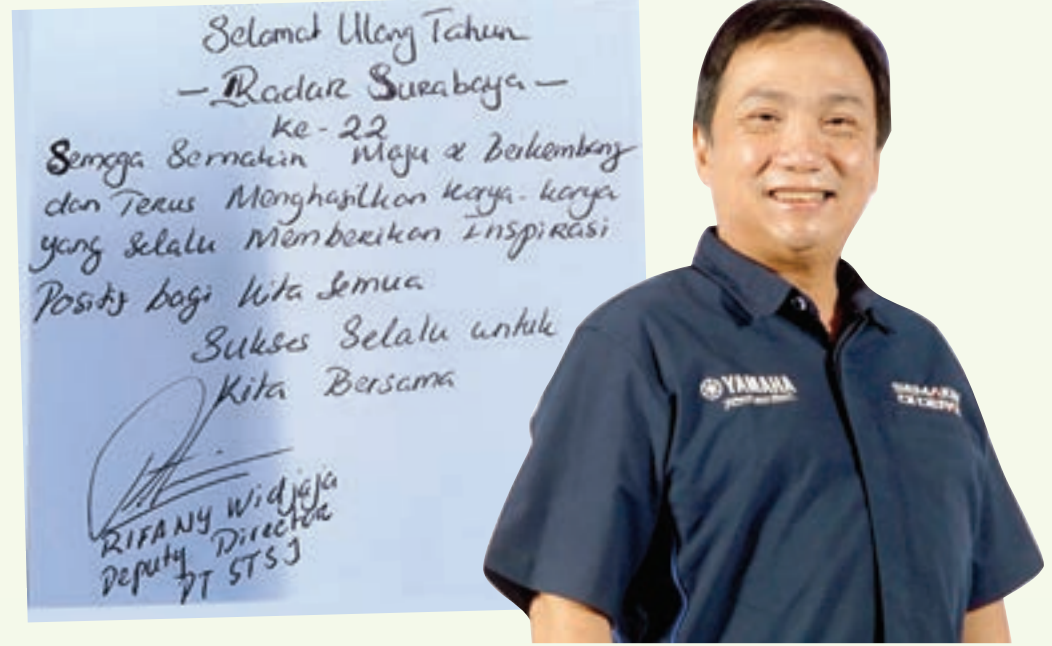 Selamat Ulang Tahun
- Radar Surabaya -
ke-22
Semoga Semakin Maju & Berkembang
dan Terus Menghasilkan karya-karya
yang selalu Memberikan Inspirasi
Positif bagi kita semua
Sukses Selalu untuk
Kita Bersama
RIFANY Widjaja
Deputy Director
PT STSJ
YAMAHA